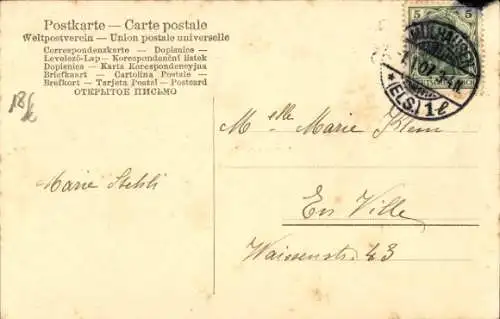 Postkarte — Carte postale
Weltpostverein — Union postale universelle
Correspondenzkarte — Dopisnice —
Levelező-Lap — Korespondanční lístek
Dopisnica — Karta Korespondencyjna
Briefkaart — Cartolina Postale —
Brefkort — Tarjeta Postal — Postcard
ОТКРЫТОЕ ПИСЬМО
5 5
MÜLHAUSEN
* (ELS.) 1 l
Melle Marie Klem
Marie Stehli
En Ville
Waisenstr. 43